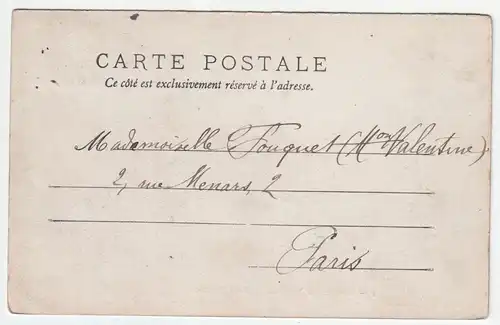 CARTE POSTALE
Ce côté est exclusivement réservé à l'adresse.
Mademoiselle Fouquet (Mon Valentine)
2, rue Menars, 2
Paris